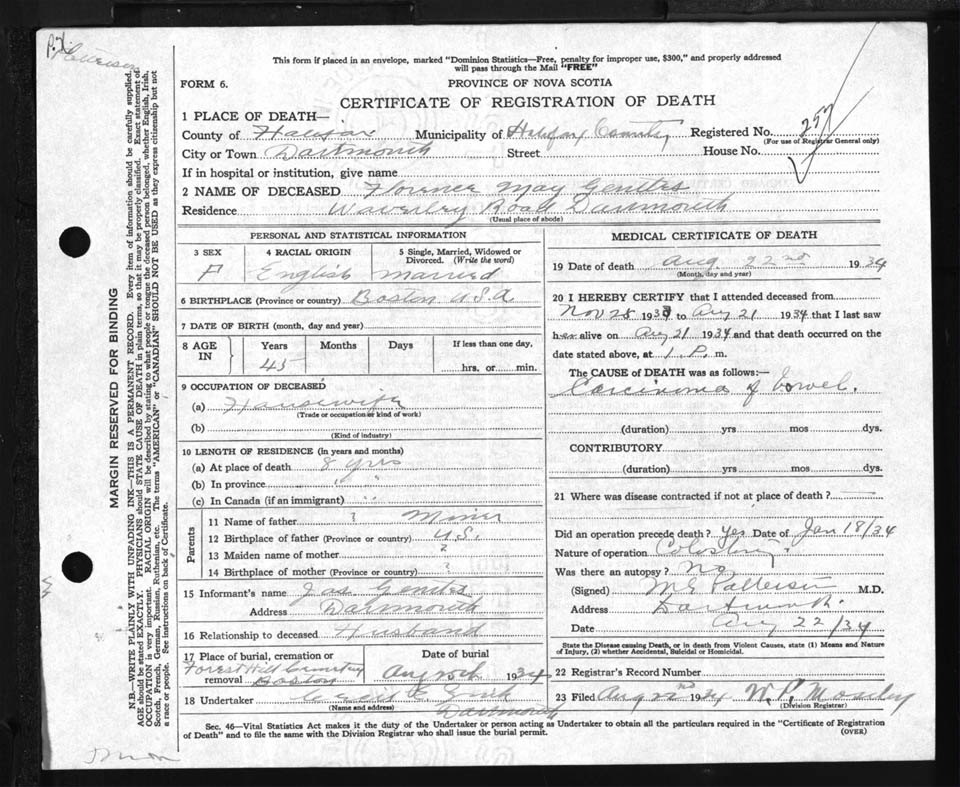 Patterson
This form if placed in an envelope, marked "Dominion Statistics—Free, penalty for improper use, $300," and properly addressed
will pass through the Mail "FREE"
FORM 6.
PROVINCE OF NOVA SCOTIA
CERTIFICATE OF REGISTRATION OF DEATH
1 PLACE OF DEATH—
County of Halifax Municipality of Halifax County Registered No. 257
(For use of Registrar General only)
City or Town Dartmouth Street House No.
If in hospital or institution, give name
2 NAME OF DECEASED Florence May Gentles
Residence Waverley Road Dartmouth
(Usual place of abode)
PERSONAL AND STATISTICAL INFORMATION
3 SEX 4 RACIAL ORIGIN 5 Single, Married, Widowed or
Divorced. (Write the word)
F English married
6 BIRTHPLACE (Province or country) Boston U.S.A
7 DATE OF BIRTH (month, day and year)
8 AGE IN Years Months Days If less than one day,
45 hrs. or min.
9 OCCUPATION OF DECEASED
(a) Housewife
(Trade or occupation or kind of work)
(b)
(Kind of industry)
10 LENGTH OF RESIDENCE (in years and months)
(a) At place of death 8 yrs
(b) In province " "
(c) In Canada (if an immigrant) "
Parents
11 Name of father ?
12 Birthplace of father (Province or country) U.S.
13 Maiden name of mother ?
14 Birthplace of mother (Province or country) ?
15 Informant's name Jas
Address Dartmouth
16 Relationship to deceased Husband
17 Place of burial, cremation or removal Date of burial
Forest Hill Cemetery
Boston Aug 1934
18 Undertaker
(Name and address) Dartmouth
MEDICAL CERTIFICATE OF DEATH
19 Date of death Aug 22nd 1934
(Month, day and year)
20 I HEREBY CERTIFY that I attended deceased from
Nov 28 1933 to Aug 21 1934 that I last saw
her alive on Aug 21 1934 and that death occurred on the
date stated above, at 1 P. m.
The CAUSE of DEATH was as follows:—
Carcinoma of bowel.
(duration) yrs mos dys.
CONTRIBUTORY
(duration) yrs mos dys.
21 Where was disease contracted if not at place of death?
Did an operation precede death? Yes Date of Jan 18/34
Nature of operation Colostomy
Was there an autopsy? No
(Signed) Patterson M.D.
Address Dartmouth
Date Aug 22/34
State the Disease causing Death, or in death from Violent Causes, state (1) Means and Nature
of Injury, (2) whether Accidental, Suicidal or Homicidal.
22 Registrar's Record Number
23 Filed Aug 1934 W. P.
(Division Registrar)
Sec. 46—Vital Statistics Act makes it the duty of the Undertaker or person acting as Undertaker to obtain all the particulars required in the "Certificate of Registration
of Death" and to file the same with the Division Registrar who shall issue the burial permit.
(OVER)
MARGIN RESERVED FOR BINDING
N.B.—WRITE PLAINLY WITH UNFADING INK—THIS IS A PERMANENT RECORD. Every item of information should be carefully supplied.
AGE should be stated EXACTLY. PHYSICIANS should STATE CAUSE OF DEATH in plain terms, so that it may be properly classified. Exact statement of
OCCUPATION is very important. RACIAL ORIGIN will be described by stating to what people or tongue the deceased person belonged, whether English, Irish,
Scotch, French, German, Russian, Ruthenian, etc. The terms "AMERICAN" or "CANADIAN" SHOULD NOT BE USED as they express citizenship but not
a race or people. See instructions on back of Certificate.